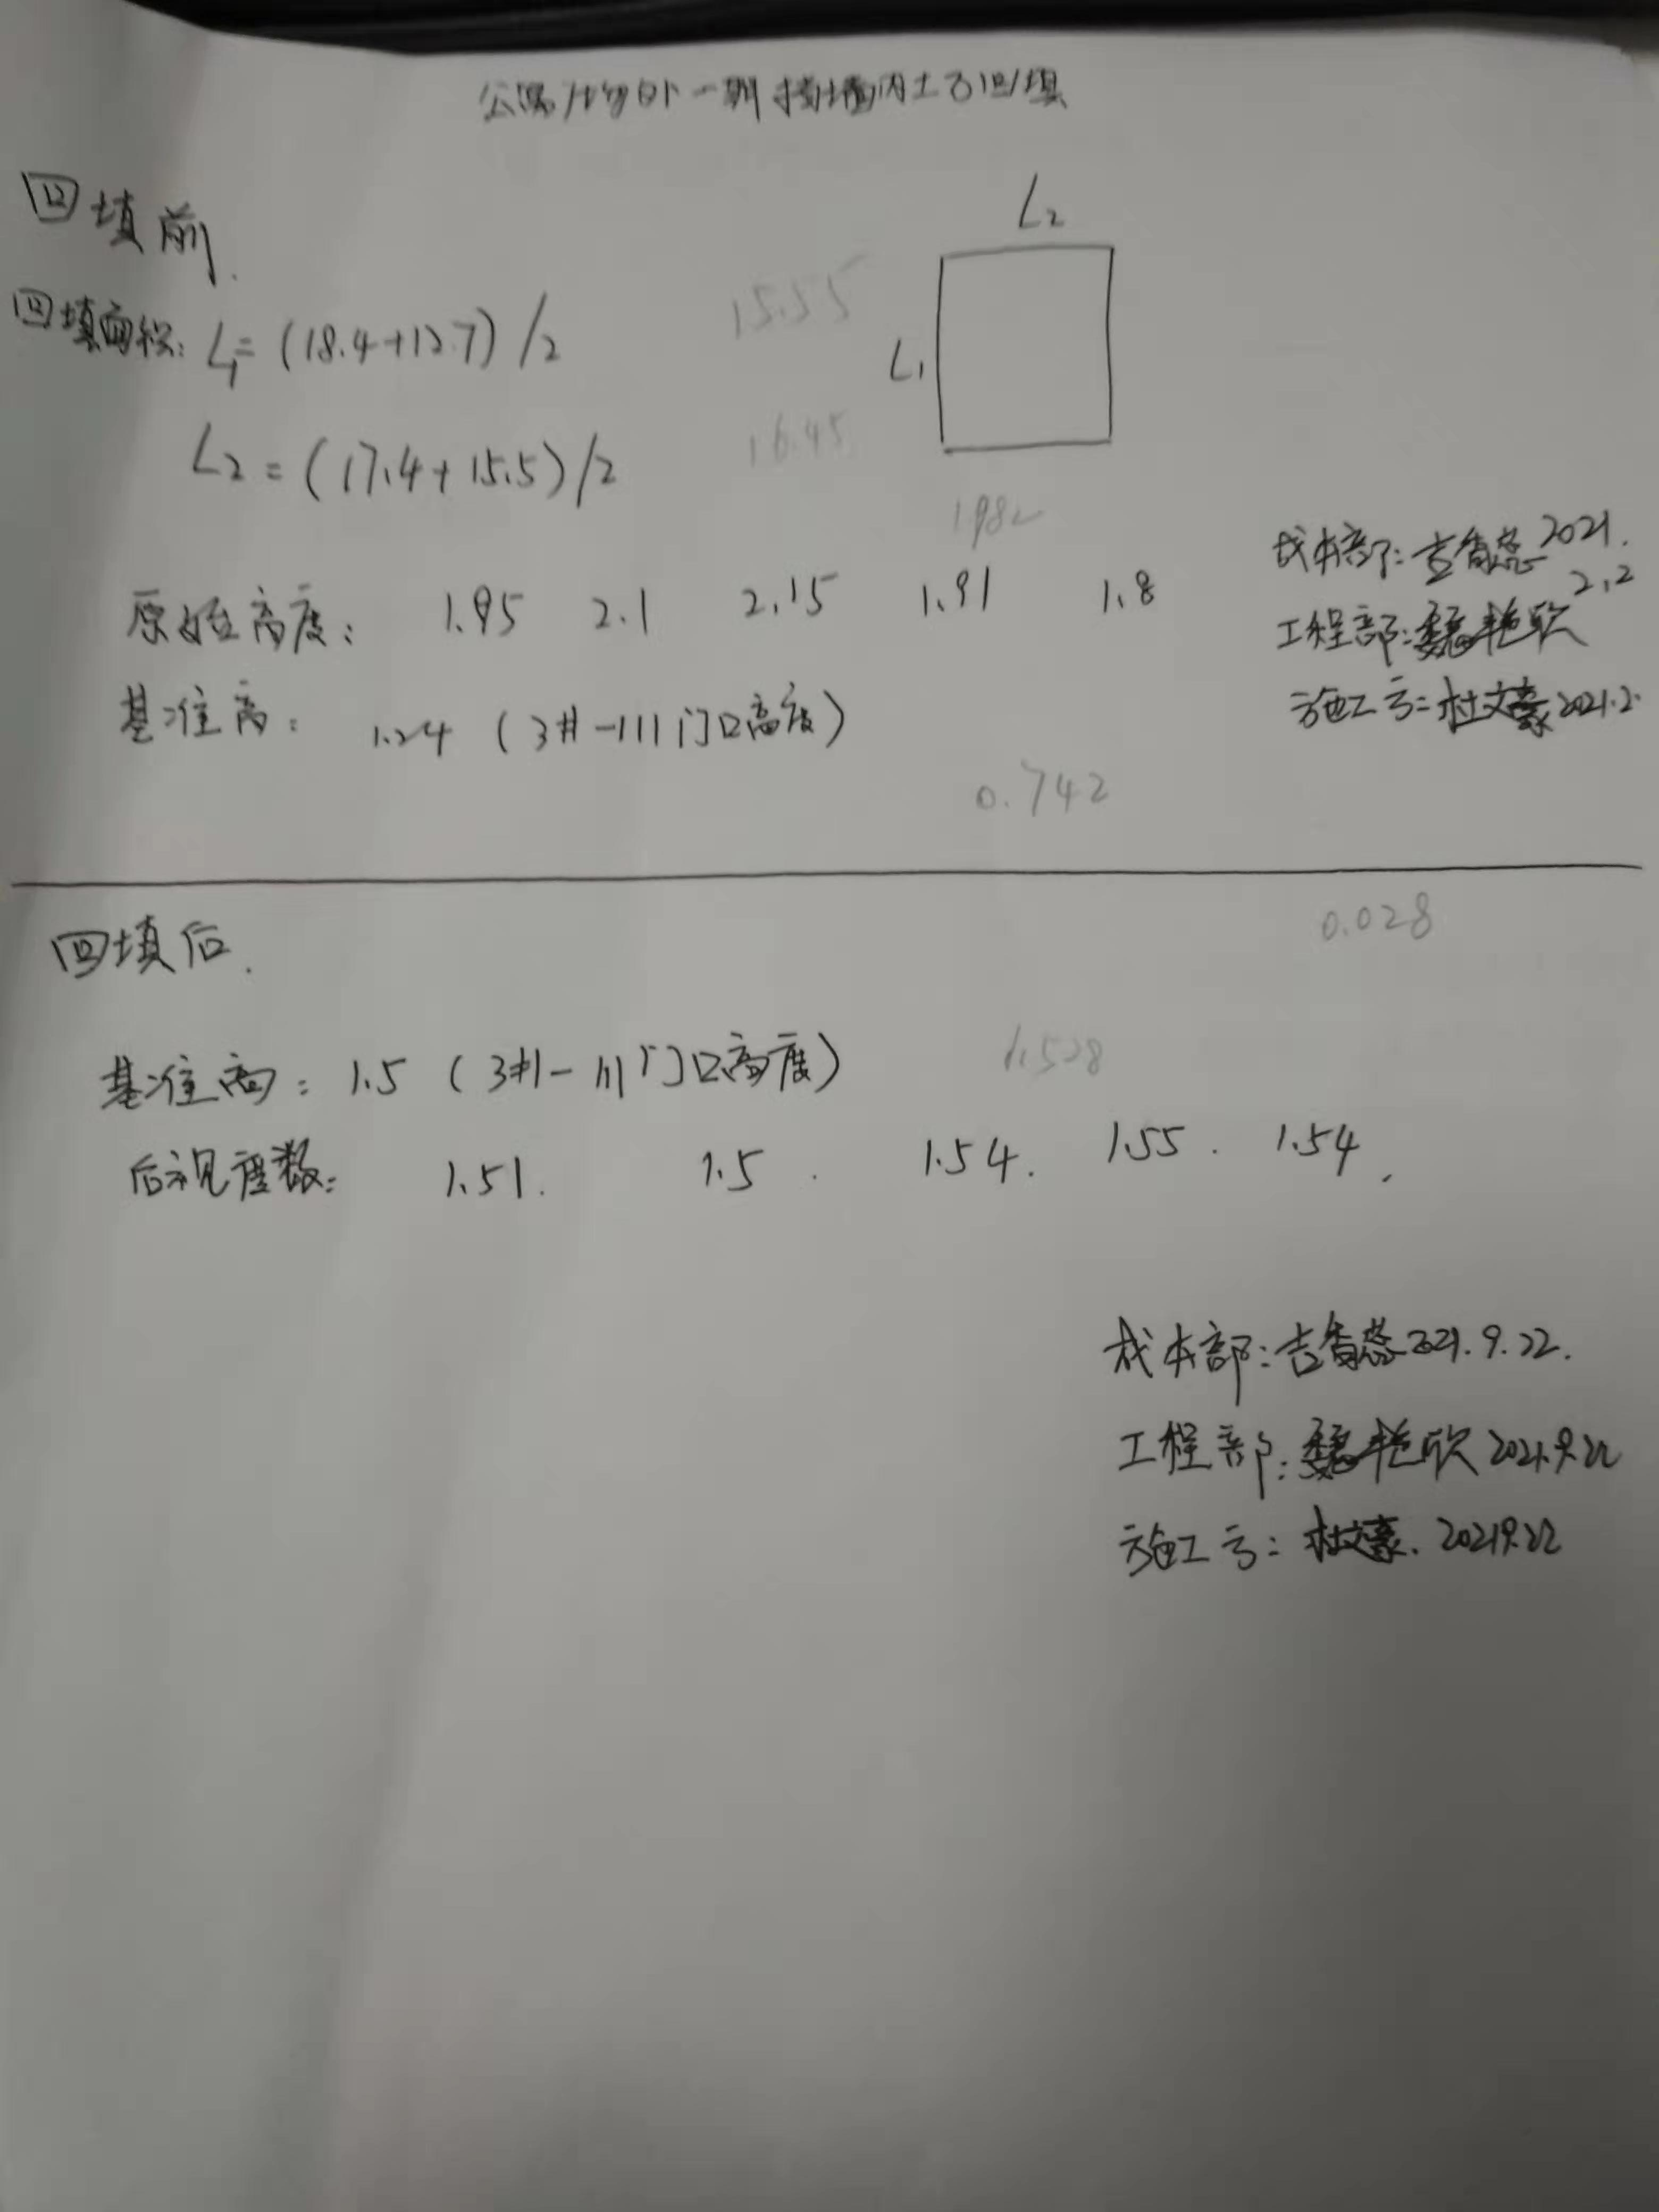 公寓ㅤ外一期挡墙内土方回填
回填前.
L₂
回填面积: L₁= (18.4+12.7) /2
15.55
L₁
L₂ = (17.4+15.5)/2
16.45
1.982
原始高度: 1.95 2.1 2.15 1.91 1.8
基准高: 1.24 (3#-111门口高度)
成本部: 吉香蕊 2021.2.2
工程部: 魏艳欣
施工方: 杜文豪 2021.2.
0.742
0.028
回填后.
基准高: 1.5 (3#-111门口高度)
1.528
后视度数: 1.51. 1.5. 1.54. 1.55. 1.54.
成本部: 吉香蕊 2021.9.22.
工程部: 魏艳欣 2021.9.22
施工方: 杜文豪. 2021.9.22